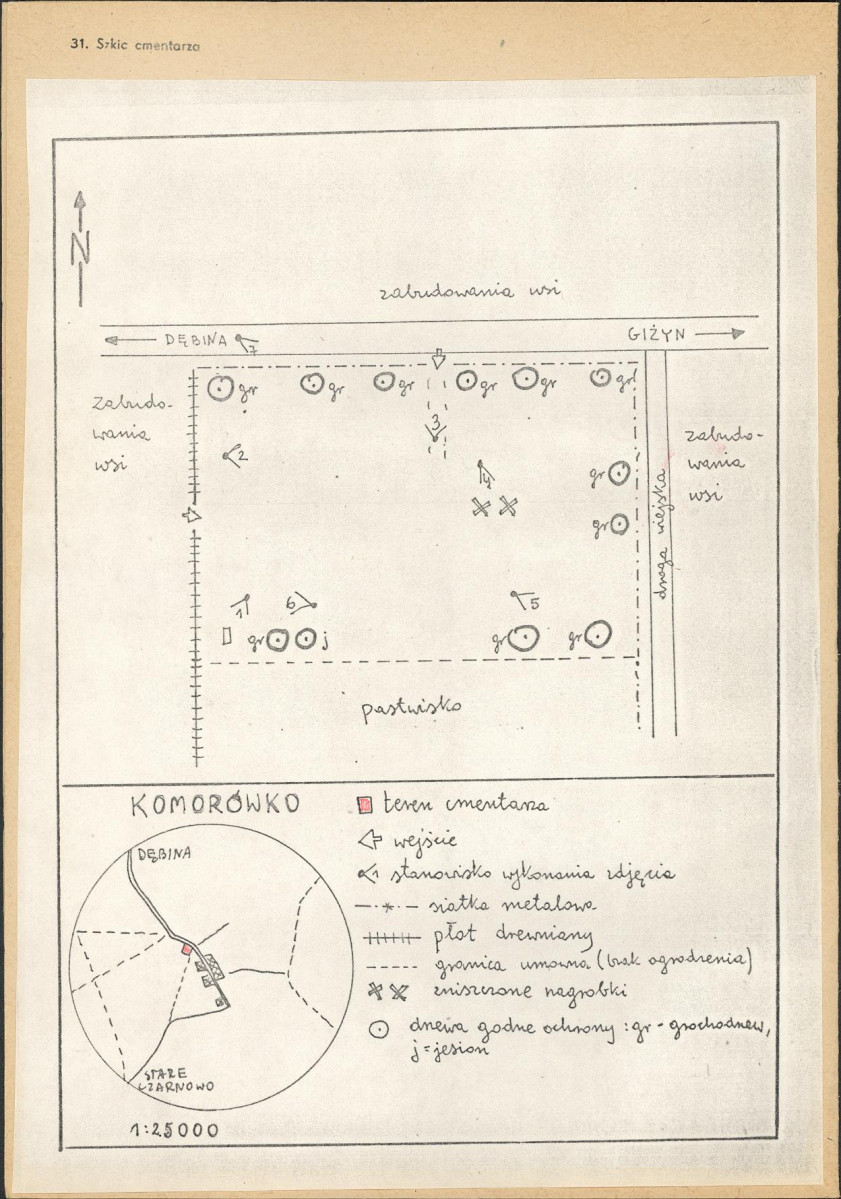 31. Szkic cmentarza
N
zabudowania wsi
DĘBINA
7
GIŻYN
gr
gr
gr
gr
gr
gr
zabudo-
wania
wsi
3
2
zabudo-
wania
wsi
4
gr
gr
droga wiejska
1
6
5
gr
j
gr
gr
pastwisko
KOMORÓWKO
teren cmentarza
wejście
1 stanowisko wykonania zdjęcia
siatka metalowa
płot drewniany
granica umowna (brak ogrodzenia)
zniszczone nagrobki
drzewa godne ochrony : gr - grochodrzew,
j = jesion
DĘBINA
STARE
CZARNOWO
1:25000